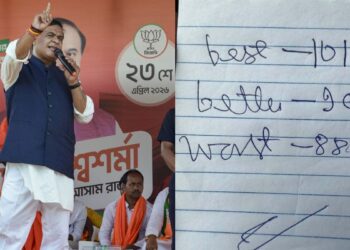 ২৩ শে
এপ্রিল ২০২৬
শ্বশর্মা
আসাম রা
best - 101
better - 90
worst - 88